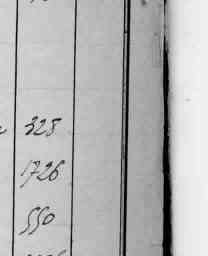 328
1726
550